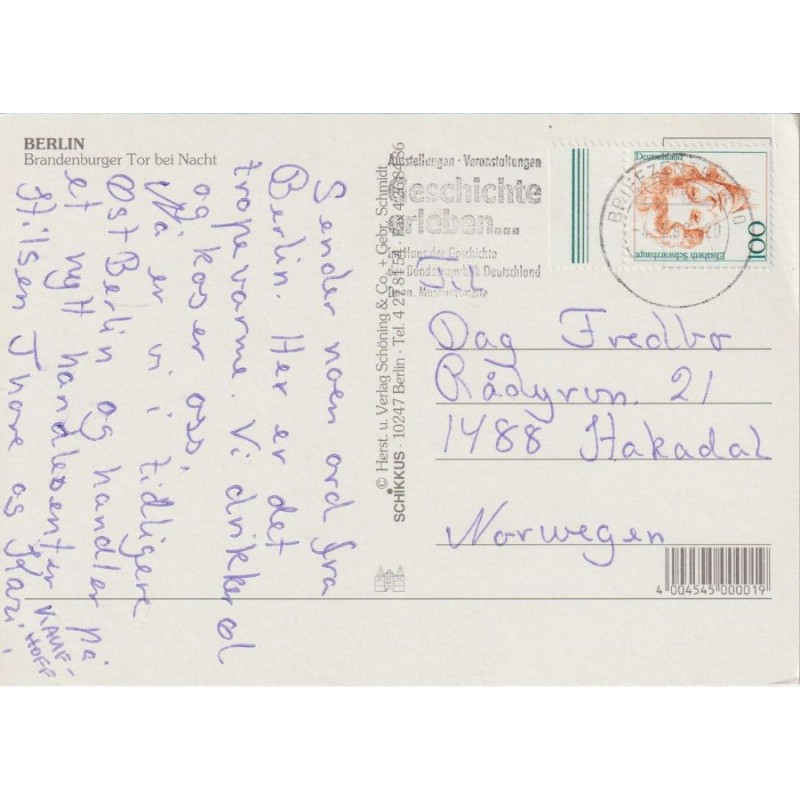 BERLIN
Brandenburger Tor bei Nacht
Sender noen ord fra
Berlin. Her er det
tropevarme. Vi drikker øl
og koser oss,
Nå er vi i tidligere
Øst Berlin og handler på
et nytt handlesenter KAUF-
HOFF
Hilsen Thore og Kari
© Herst. u. Verlag Schöning & Co. + Gebr. Schmidt
SCHIKKUS · 10247 Berlin · Tel.
Ausstellungen · Veranstaltungen
Geschichte
erleben...
im Haus der Geschichte
der Bundesrepublik Deutschland
Bonn, Museumsmeile
BRIEFZ
Deutschland
Elisabeth Schwarzhaupt
100
Til
Dag Fredbo
Rådyrvn. 21
1488 Hakadal
Norwegen
4 004545 000019